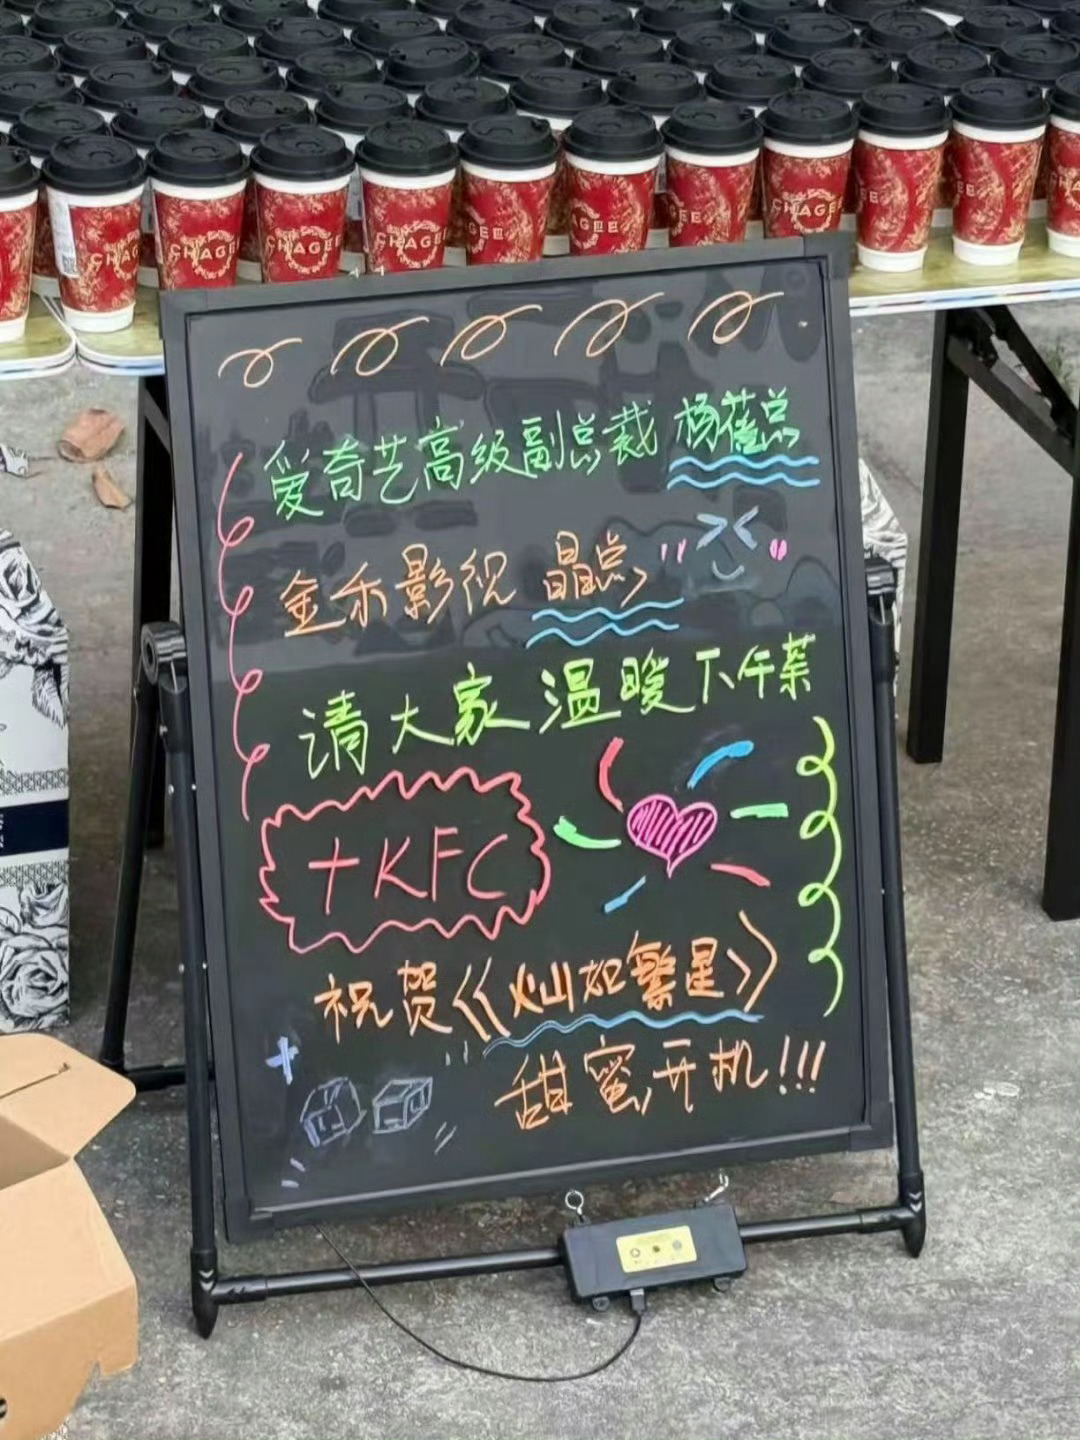 CHAGEE CHAGEE CHAGEE CHAGEE CHAGEE
爱奇艺高级副总裁 杨蓓总
金禾影视 晶总
请大家温暖下午茶
+KFC
祝贺《灿如繁星》
甜蜜开机!!!